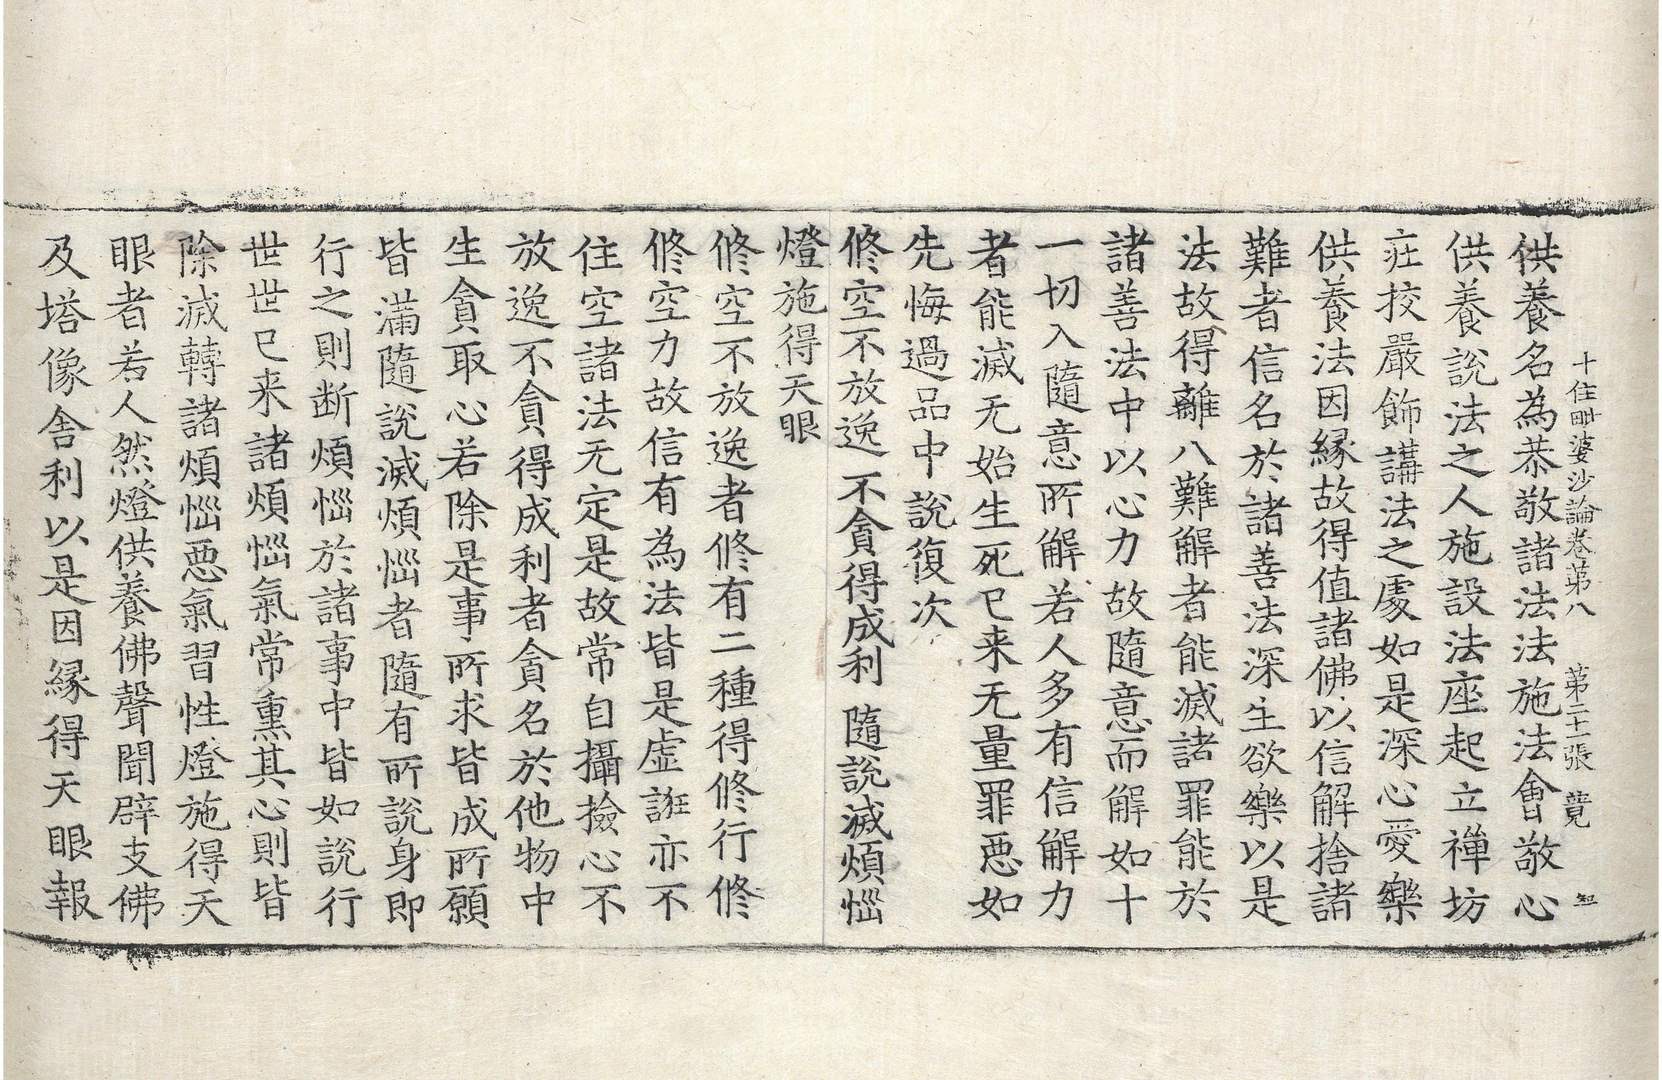 十住毗婆沙論卷苐八　苐二十一張　覓
供養名為恭敬諸法法施法會敬心
供養說法之人施設法座起立禪坊
庄挍嚴飾講法之處如是深心愛樂
供養法因緣故得值諸佛以信解捨諸
難者信名於諸善法深生欲樂以是
法故得離八難解者能滅諸罪能於
諸善法中以心力故隨意而解如十
一切入隨意所解若人多有信解力
者能滅无始生死已来无量罪惡如
先悔過品中說復次
修空不放逸 不貪得成利 隨說滅煩惱
燈施得天眼
修空不放逸者修有二種得修行修
修空力故信有為法皆是虛誑亦不
住空諸法无定是故常自攝撿心不
放逸不貪得成利者貪名於他物中
生貪取心若除是事所求皆成所願
皆滿隨說滅煩惱者隨有所說身即
行之則断煩惱於諸事中皆如說行
世世已来諸煩惱氣常熏其心則皆
除滅轉諸煩惱惡氣習性燈施得天
眼者若人然燈供養佛聲聞辟支佛
及塔像舍利以是因緣得天眼報